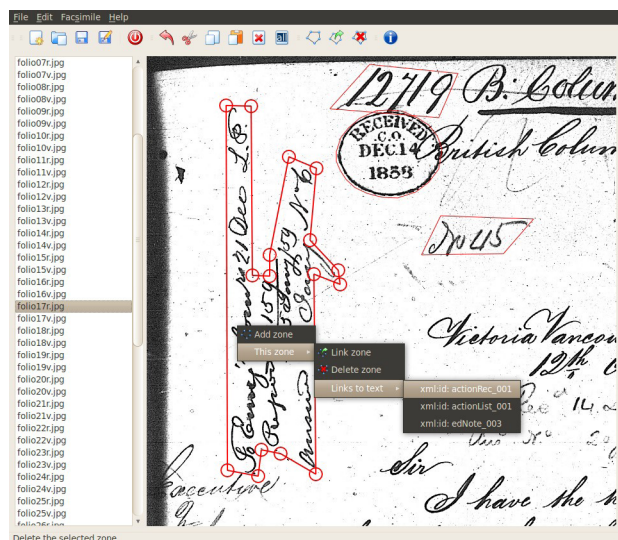 File Edit Facsimile Help
folio07r.jpg
folio07v.jpg
folio08r.jpg
folio08v.jpg
folio09r.jpg
folio09v.jpg
folio10r.jpg
folio10v.jpg
folio11r.jpg
folio11v.jpg
folio12r.jpg
folio12v.jpg
folio13r.jpg
folio13v.jpg
folio14r.jpg
folio14v.jpg
folio15r.jpg
folio15v.jpg
folio16r.jpg
folio16v.jpg
folio17r.jpg
folio17v.jpg
folio18r.jpg
folio18v.jpg
folio19r.jpg
folio19v.jpg
folio20r.jpg
folio20v.jpg
folio21r.jpg
folio21v.jpg
folio22r.jpg
folio22v.jpg
folio23r.jpg
folio23v.jpg
folio24r.jpg
folio24v.jpg
folio25r.jpg
folio25v.jpg
folio26r.jpg
Delete the selected zone
12719 B: Colum
RECEIVED
C.O.
DEC 14
1858
British Colum
No 45
21 Dec
Add zone
This zone
Link zone
Delete zone
Links to text
xml:id: actionRec_001
xml:id: actionList_001
xml:id: edNote_003
Victoria Vancou
12th
Sir
I have the h
Executive